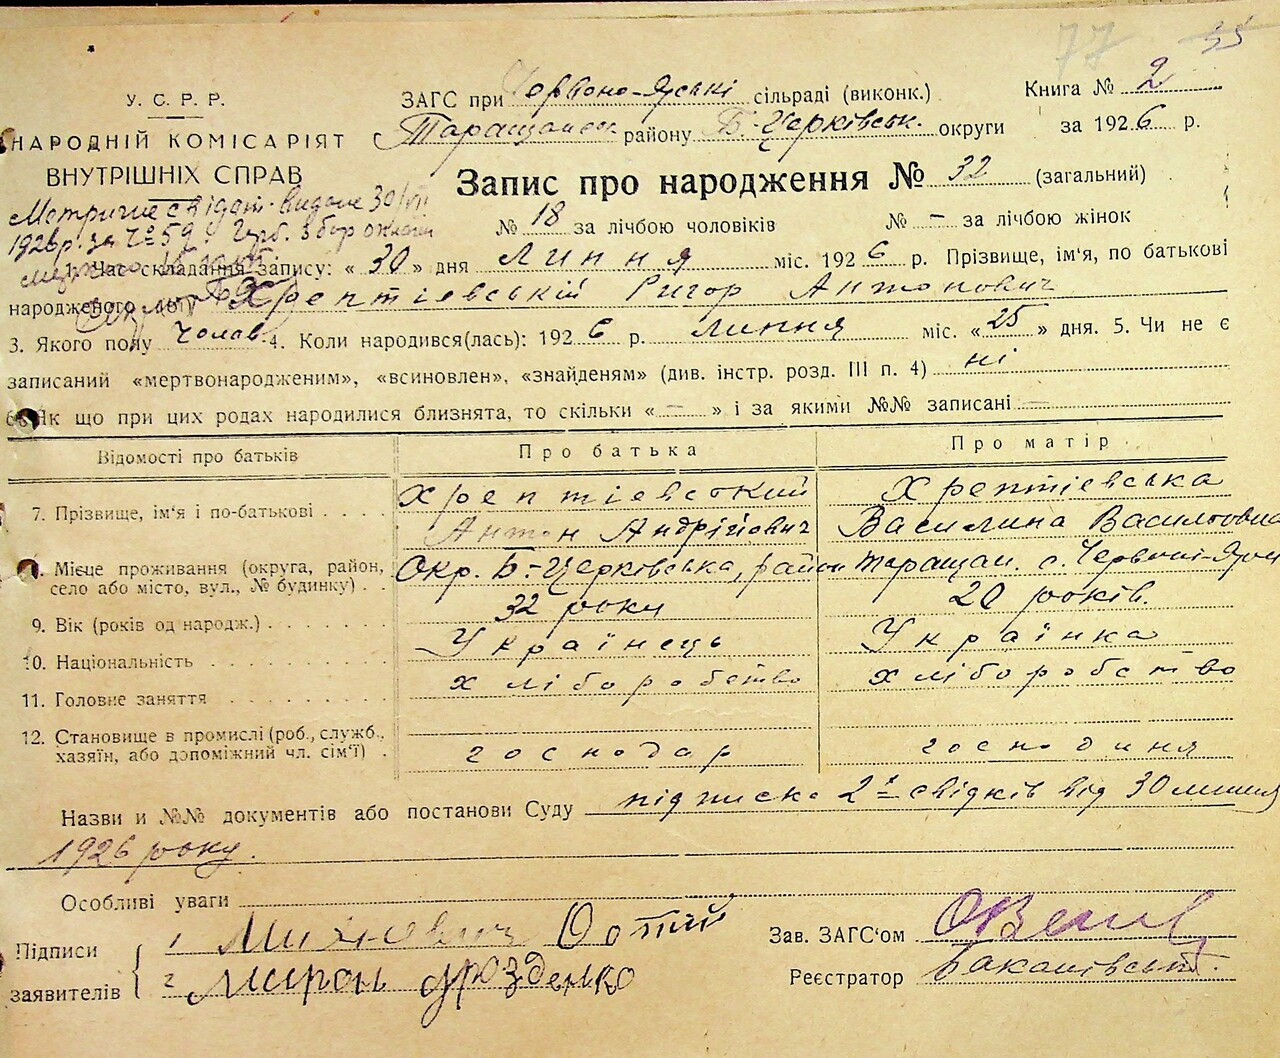 77 35
У. С. Р. Р.
НАРОДНІЙ КОМІСАРІЯТ
ВНУТРІШНІХ СПРАВ
ЗАГС при Червоно-Ярські сільраді (виконк.) Книга № 2
Таращанськ району Б. Церківськ. округи за 1926 р.
Запис про народження № 32 (загальний)
№ 18 за лічбою чоловіків № – за лічбою жінок
Метричне свідот. видане 30/VII
1926 р. за № 59.
1. Час складання запису: «30» дня Липня міс. 1926 р. Прізвище, ім'я, по батькові
народженого Хрептієвській Ригор Антонович
3. Якого полу Чолов. 4. Коли народився(лась): 1926 р. липня міс. «25» дня. 5. Чи не є
записаний «мертвонародженим», «всиновлен», «знайденям» (див. інстр. розд. III п. 4) ні
6. Як що при цих родах народилися близнята, то скільки «–» і за якими №№ записані –
Відомості про батьків Про батька Про матір
7. Прізвище, ім'я і по-батькові Хрептієвский Антон Андрійович Хрептієвська Василина Василовна
8. Місце проживання (округа, район, село або місто, вул., № будинку) Окр. Б.-Церківська, район Таращан. с. Червоні-Яри
9. Вік (років од народж.) 32 роки 20 років.
10. Національність Українець Українка
11. Головне заняття хліборобство хліборобство
12. Становище в промислі (роб., служб., хазяїн, або допоміжний чл. сім'ї) господар господиня
Назви и №№ документів або постанови Суду підписка 2х свідків від 30 липня
1926 року.
Особливі уваги
Підписи заявителів
1 Михневич
2 Мирон Дрозденко
Зав. ЗАГС'ом
Реєстратор